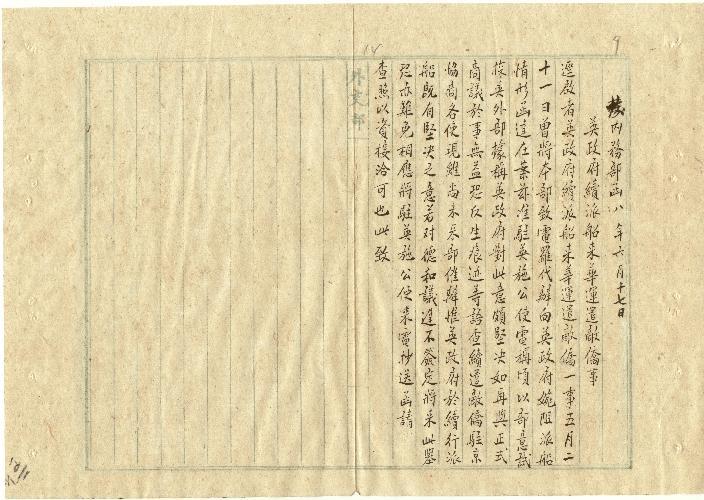 9
14
外交部
發內務部函 八年六月十七日
英政府續派船來華運遣敵僑事
逕啟者英政府續派船來華運遣敵僑一事五月二
十一日曾將本部致電羅代辦向英政府婉阻派船
情形函達在案茲准駐英施公使電稱頃以部意試
探英外部據稱英政府對此意頗堅决如再與正式
商議於事無益恐反生痕迹等語查續遣敵僑駐京
協商各使現雖尚未來部催辦惟英政府於續行派
船既有堅决之意若对德和議遲不簽定將來此舉
恐亦難免相應將駐英施公使來電抄送函請
查照以資接洽可也此致